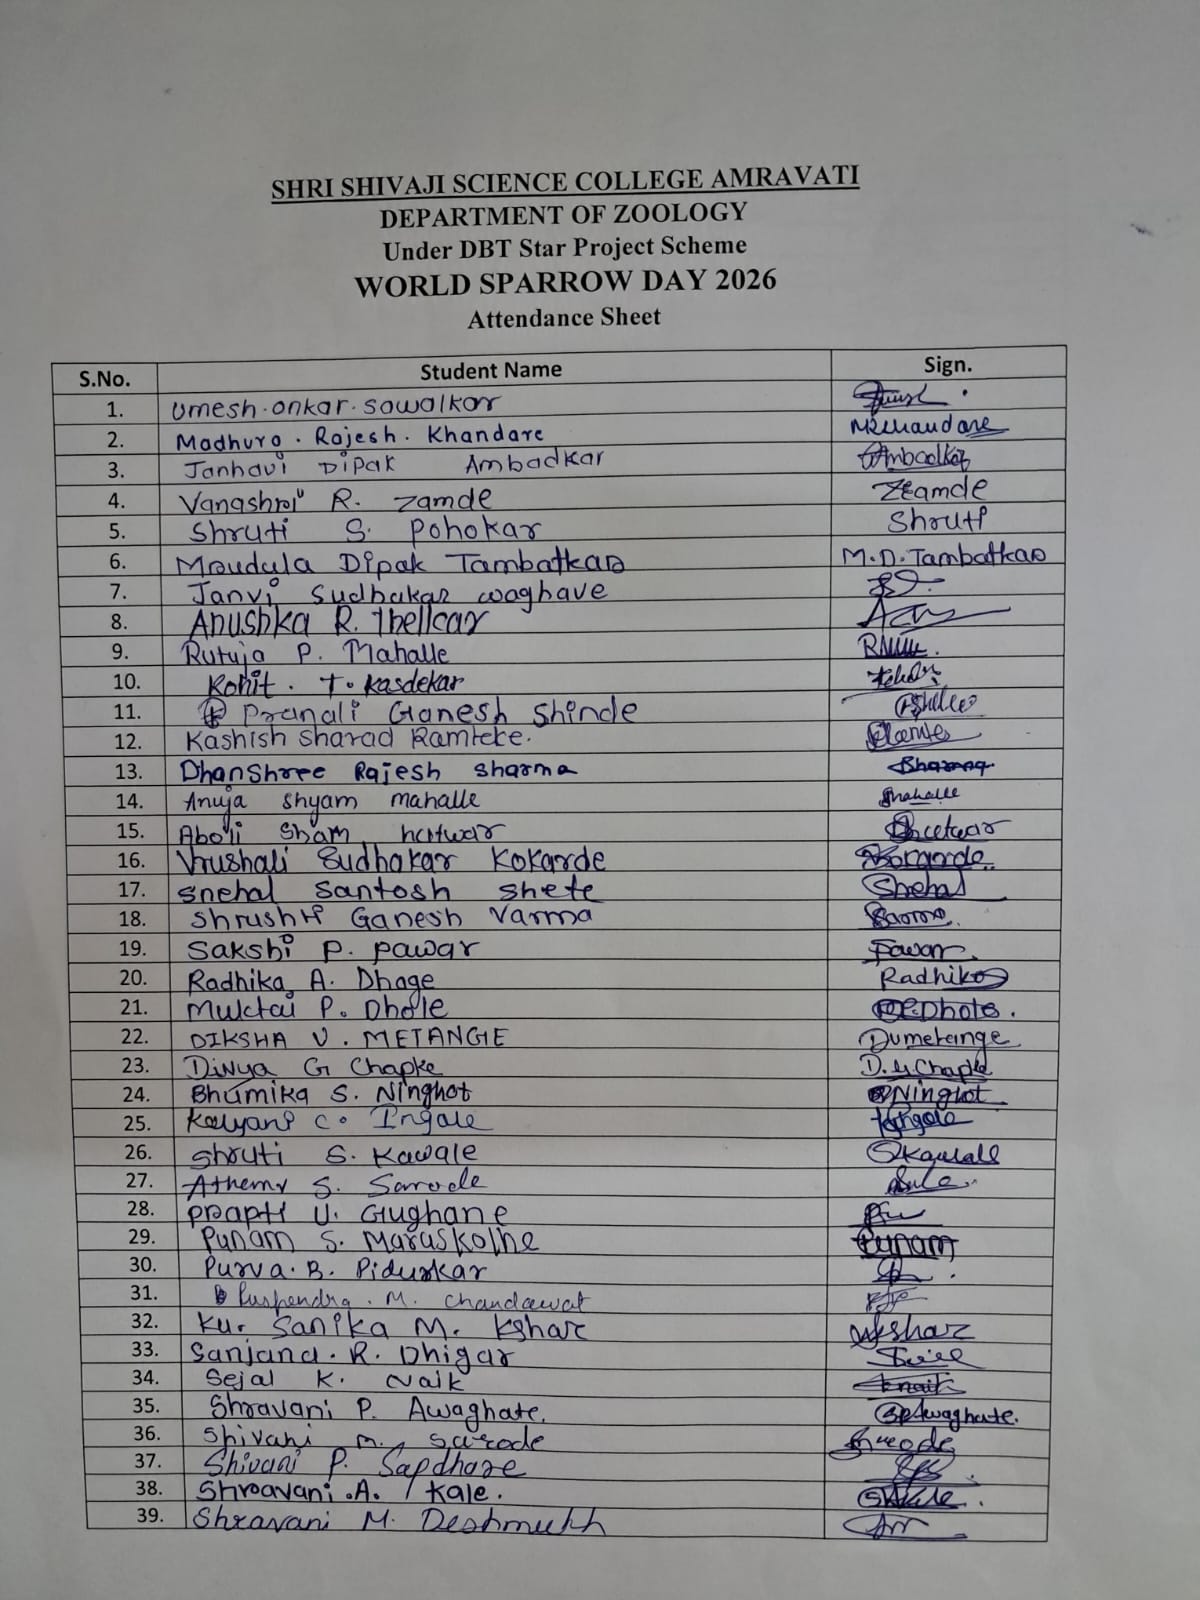 SHRI SHIVAJI SCIENCE COLLEGE AMRAVATI
DEPARTMENT OF ZOOLOGY
Under DBT Star Project Scheme
WORLD SPARROW DAY 2026
Attendance Sheet
S.No. Student Name Sign.
1. Umesh.onkar.sawalkar
2. Madhura. Rajesh. Khandare
3. Janhavi Dipak Ambadkar Ambadkar
4. Vanashri R. Zamde Zamde
5. Shruti S. Pohokar Shruti
6. Mrudula Dipak Tambatkar M.D.Tambatkar
7. Janvi Sudhakar waghave
8. Anushka R. Thelkar
9. Rutuja P. Mahalle
10. Rohit. T. Kasdekar
11. Pranali Ganesh Shinde
12. Kashish Sharad Ramteke.
13. Dhanshree Rajesh Sharma
14. Anuja Shyam mahalle
15. Aboli Sham
16. Vrushali Sudhakar Kokarde
17. Snehal Santosh Shete Snehal
18. Shrushti Ganesh Varma
19. Sakshi P. Pawar Pawar
20. Radhika A. Dhage Radhika
21. Muktai P. Dhole
22. DIKSHA V. METANGE
23. Divya G Chapke D.G.Chapke
24. Bhumika S. Ninghot Ninghot
25. Kalyani C. Ingale
26. Shruti S. Kawale
27. S. Sarode
28. Prapti U. Gughane
29. Punam S. Maraskolhe Punam
30. Purva.B. Pidurkar
31. Puspendra. M. Chandawat
32. Ku. Sanika M. Kshar
33. Sanjana. R. Dhigar
34. Sejal K. Naik
35. Shravani P. Awaghate. SPAwaghate.
36. Shivani M. Sarode
37. Shivani P. Sapdhare
38. Shravani.A. Kale.
39. Shravani M. Deshmukh